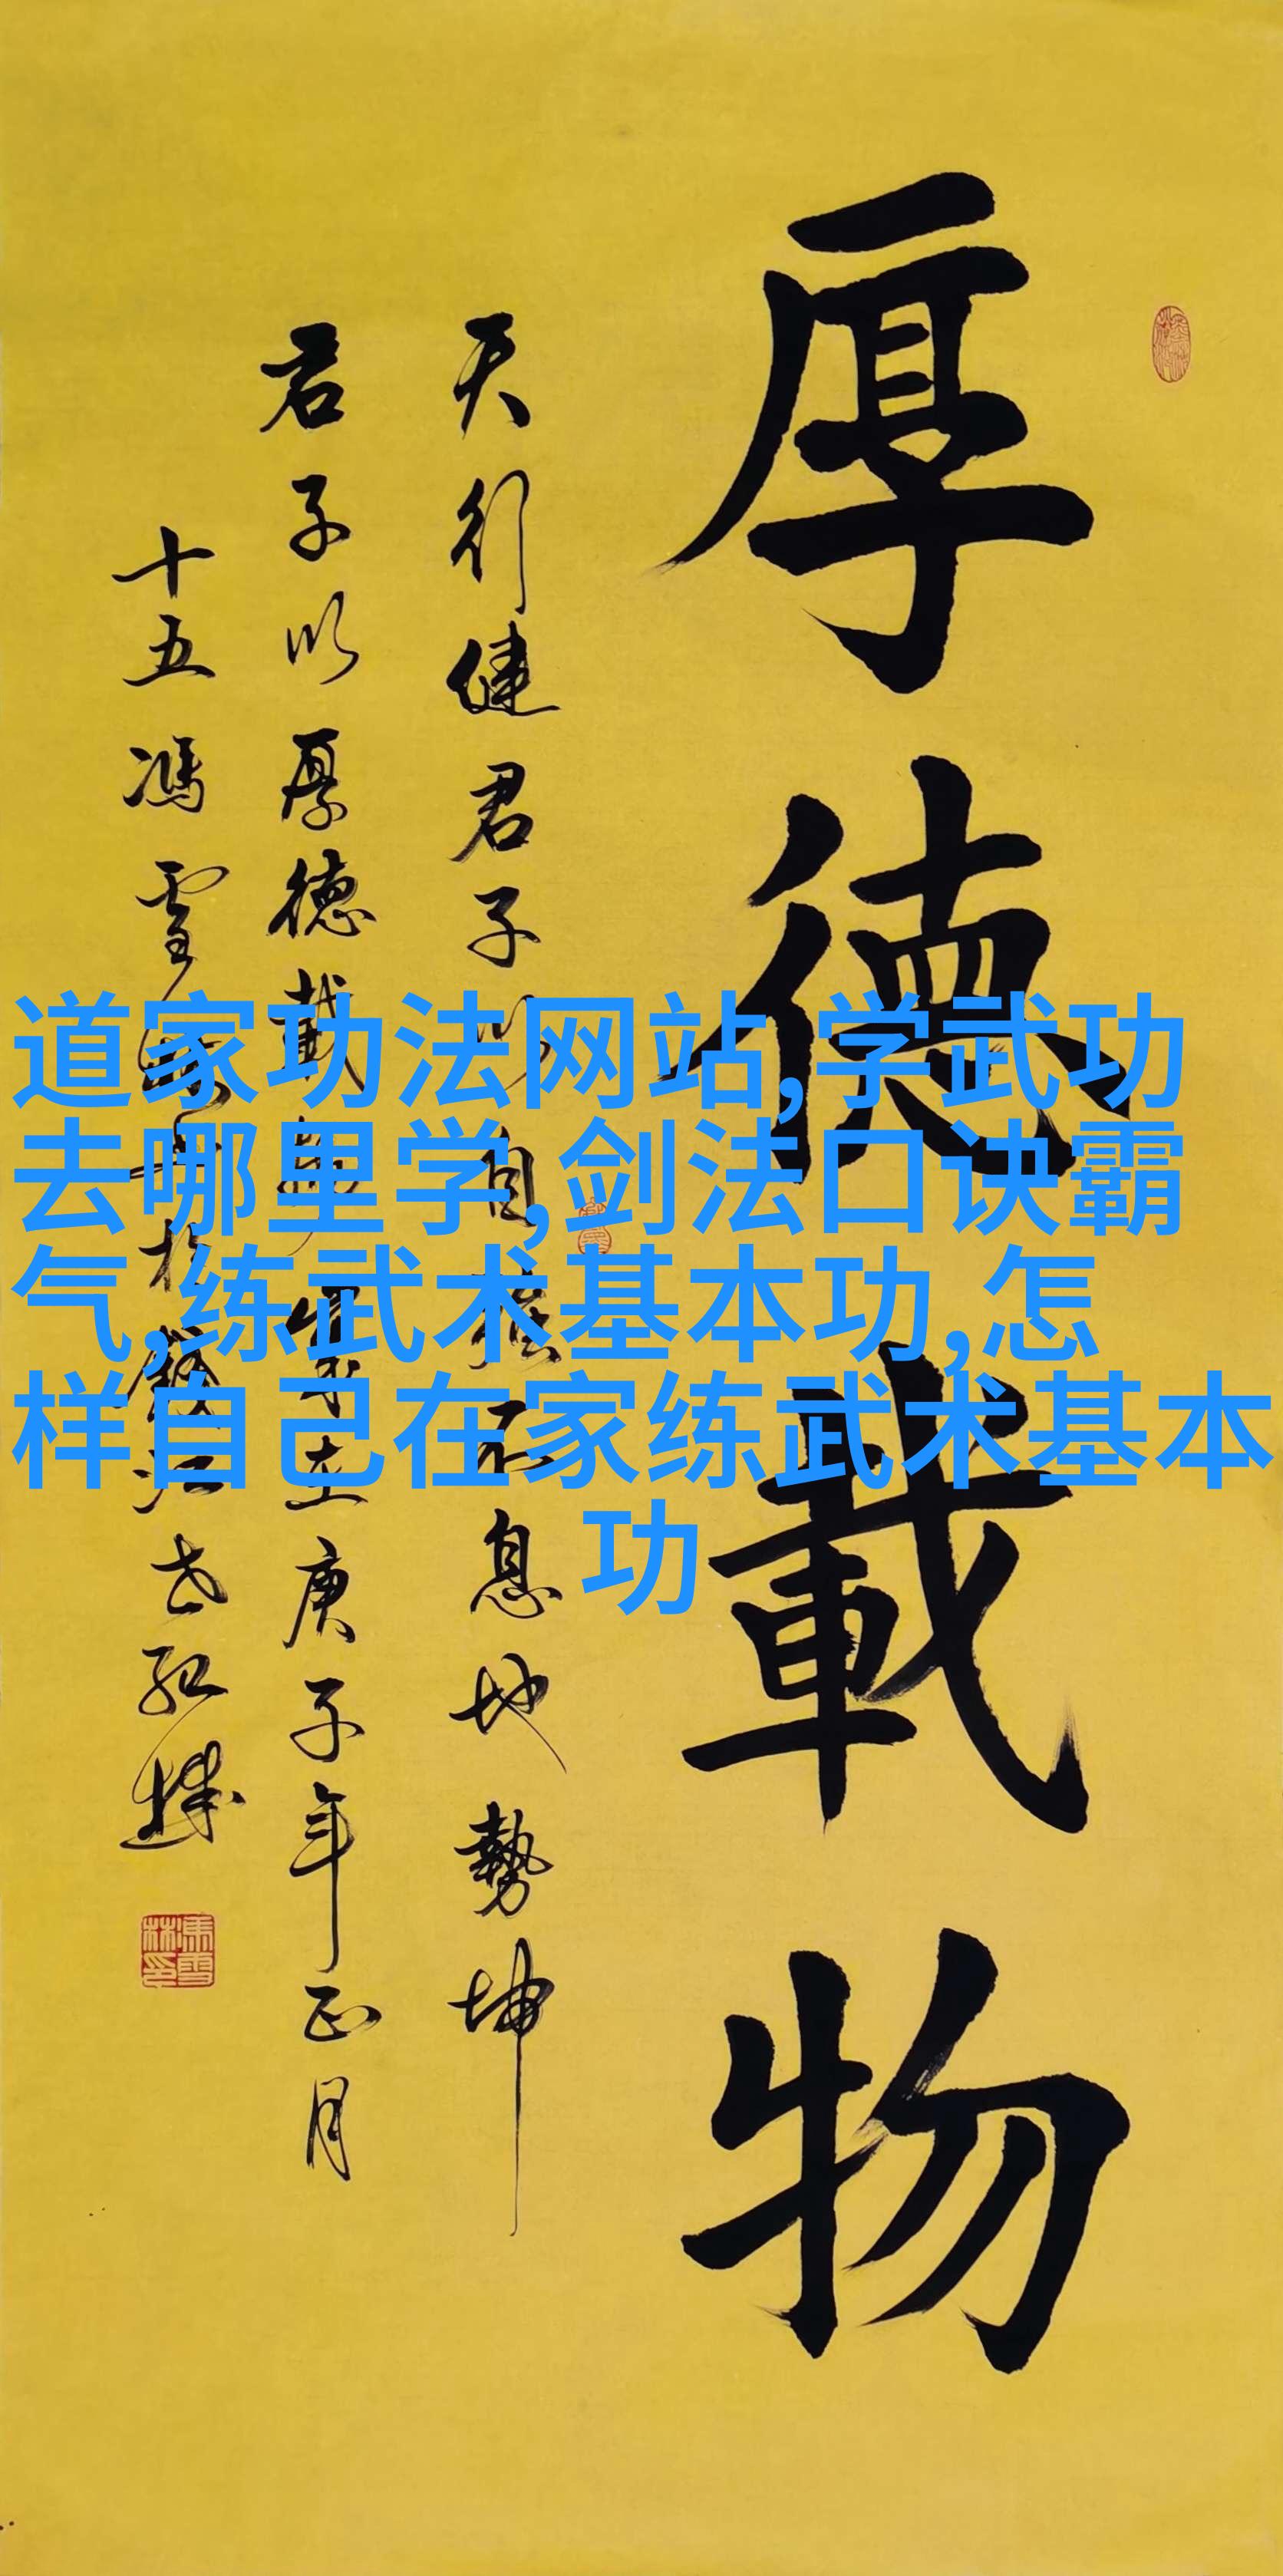 厚德載物
天行健君子以自强不息地勢坤
君子以厚德載物 歲在庚子年正月
十五馮雪林書於錢江
道家功法网站,学武功
去哪里学,剑法口诀霸
气,练武术基本功,怎
样自己在家练武术基本
功
馮雪
林印